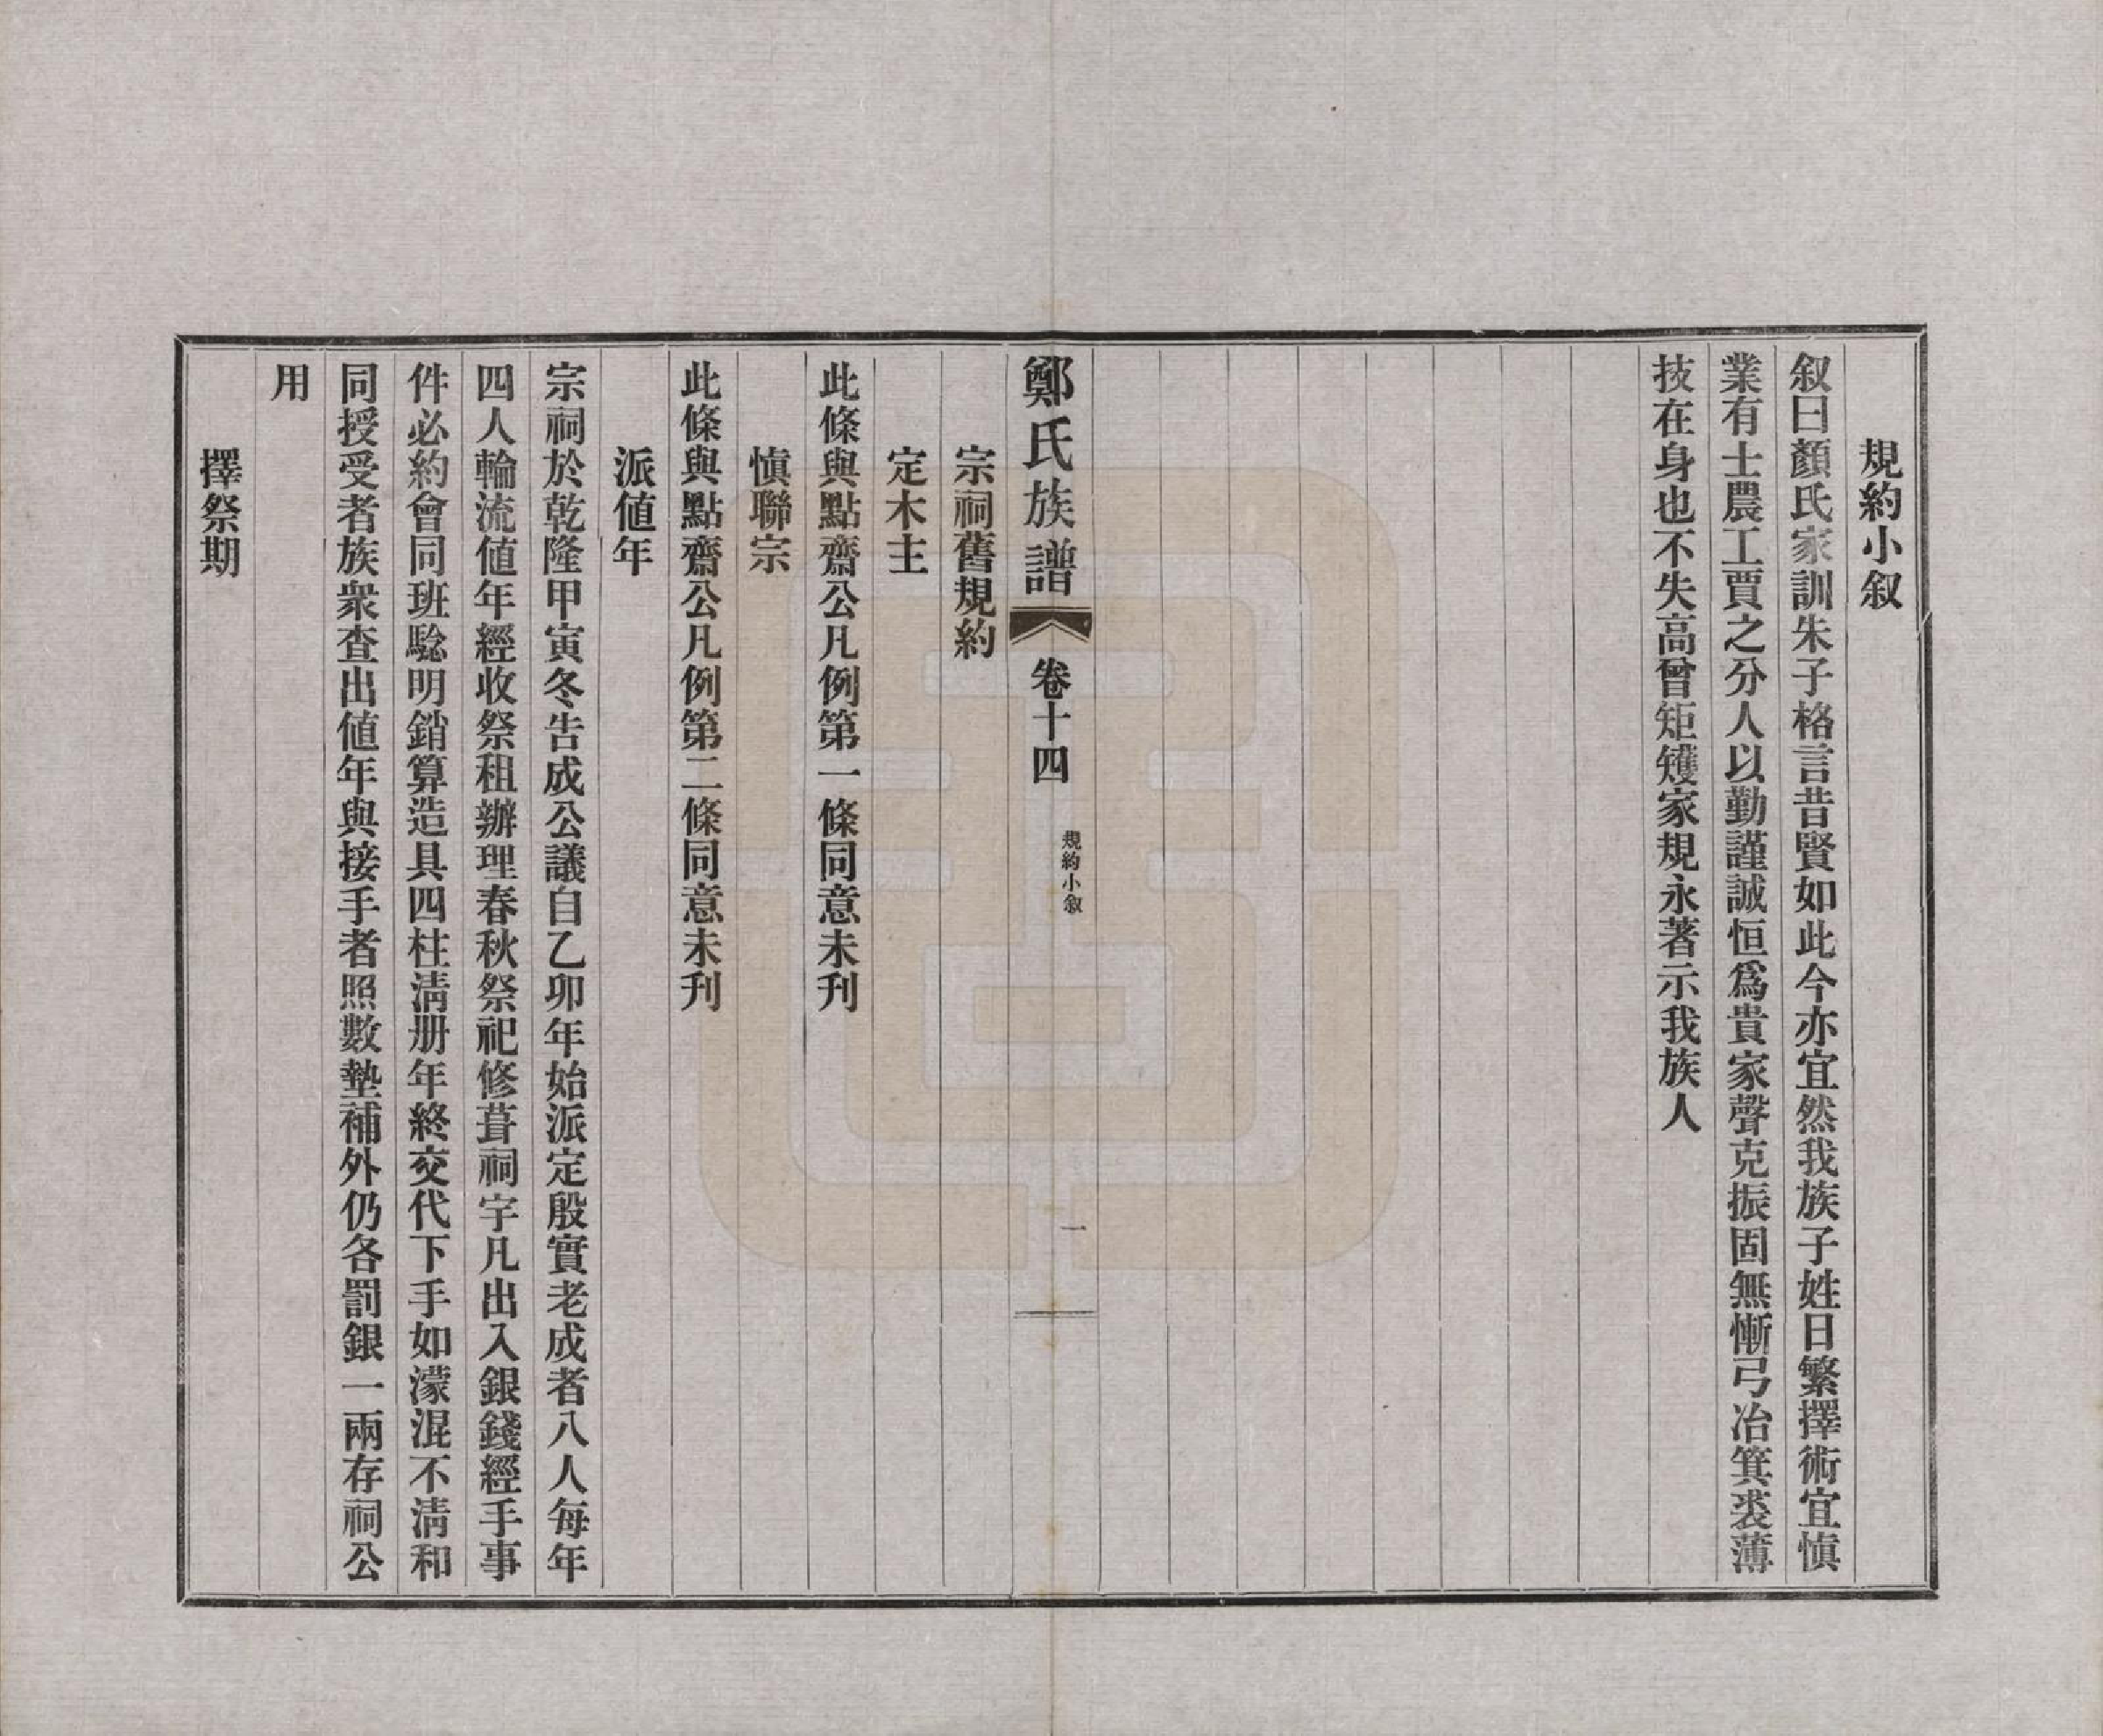 規約小叙
叙曰顏氏家訓朱子格言昔賢如此今亦宜然我族子姓日繁擇術宜慎
業有士農工賈之分人以勤謹誠恒爲貴家聲克振固無慚弓冶箕裘薄
技在身也不失高曾矩矱家規永著示我族人
鄭氏族譜 卷十四 規約小敘 一
宗祠舊規約
定木主
此條與點齋公凡例第一條同意未刋
慎聯宗
此條與點齋公凡例第二條同意未刋
派値年
宗祠於乾隆甲寅冬告成公議自乙卯年始派定殷實老成者八人每年
四人輪流値年經收祭租辦理春秋祭祀修葺祠宇凡出入銀錢經手事
件必約會同班騐明銷算造具四柱淸册年終交代下手如濛混不淸和
同授受者族衆查出値年與接手者照數墊補外仍各罰銀一兩存祠公
用
擇祭期